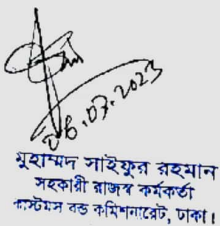 26.07.2023
মুহাম্মদ সাইফুর রহমান
সহকারী রাজস্ব কর্মকর্তা
কাস্টমস বন্ড কমিশনারেট, ঢাকা।